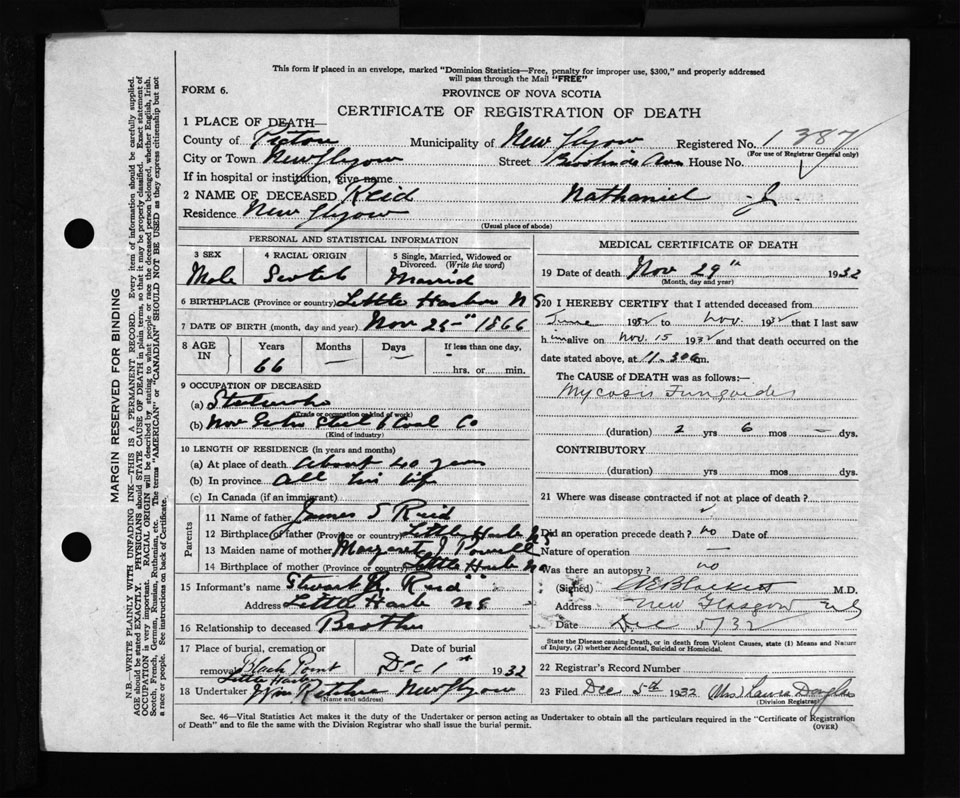 This form if placed in an envelope, marked "Dominion Statistics—Free, penalty for improper use, $300," and properly addressed
will pass through the Mail "FREE"
FORM 6.
PROVINCE OF NOVA SCOTIA
CERTIFICATE OF REGISTRATION OF DEATH
1 PLACE OF DEATH—
County of Pictou Municipality of New Glgow Registered No. 1387
(For use of Registrar General only)
City or Town New Glgow Street House No.
If in hospital or institution, give name
2 NAME OF DECEASED Reid Nathaniel J.
Residence New Glgow
(Usual place of abode)
PERSONAL AND STATISTICAL INFORMATION
3 SEX Male
4 RACIAL ORIGIN Scotch
5 Single, Married, Widowed or Divorced. (Write the word) Married
6 BIRTHPLACE (Province or country) Little Harbor N S
7 DATE OF BIRTH (month, day and year) Nov 25th 1866
8 AGE IN Years 66 Months — Days — If less than one day, hrs. or min.
9 OCCUPATION OF DECEASED
(a) Steelworker
(Trade or occupation or kind of work)
(b) Nova Scotia Steel & Coal Co
(Kind of industry)
10 LENGTH OF RESIDENCE (in years and months)
(a) At place of death About 40 years
(b) In province All his life
(c) In Canada (if an immigrant)
Parents
11 Name of father James S Reid
12 Birthplace of father (Province or country) Little Harb N S
13 Maiden name of mother Margaret J Powell
14 Birthplace of mother (Province or country) Little Harb N S
15 Informant's name Stuart Reid
Address Little Harb N S
16 Relationship to deceased Brother
17 Place of burial, cremation or removal Black Point Little Harbor
Date of burial Dec 1st 1932
18 Undertaker Wm Ritchie New Glgow
(Name and address)
MEDICAL CERTIFICATE OF DEATH
19 Date of death Nov 29th 1932
(Month, day and year)
20 I HEREBY CERTIFY that I attended deceased from
June 1932 to Nov. 1932 that I last saw
him alive on Nov. 15 1932 and that death occurred on the
date stated above, at 11.30 a m.
The CAUSE of DEATH was as follows:—
Mycosis Fungoides
(duration) 2 yrs 6 mos — dys.
CONTRIBUTORY
(duration) yrs mos dys.
21 Where was disease contracted if not at place of death?
Did an operation precede death? no Date of
Nature of operation —
Was there an autopsy? no
(Signed) M.D.
Address New Glasgow N.S.
Date Dec 5/32
State the Disease causing Death, or in death from Violent Causes, state (1) Means and Nature
of Injury, (2) whether Accidental, Suicidal or Homicidal.
22 Registrar's Record Number
23 Filed Dec 5th 1932 (Mrs) Laura Douglas
(Division Registrar)
Sec. 46—Vital Statistics Act makes it the duty of the Undertaker or person acting as Undertaker to obtain all the particulars required in the "Certificate of Registration
of Death" and to file the same with the Division Registrar who shall issue the burial permit.
(OVER)
MARGIN RESERVED FOR BINDING
N.B.—WRITE PLAINLY WITH UNFADING INK—THIS IS A PERMANENT RECORD. Every item of information should be carefully supplied.
AGE should be stated EXACTLY. PHYSICIANS should STATE CAUSE OF DEATH in plain terms, so that it may be properly classified. Exact statement of
OCCUPATION is very important. RACIAL ORIGIN will be described by stating to what people or race the deceased person belonged, whether English, Irish,
Scotch, French, German, Russian, Ruthenian, etc. The terms "AMERICAN" or "CANADIAN" SHOULD NOT BE USED as they express citizenship but not
a race or people. See instructions on back of Certificate.